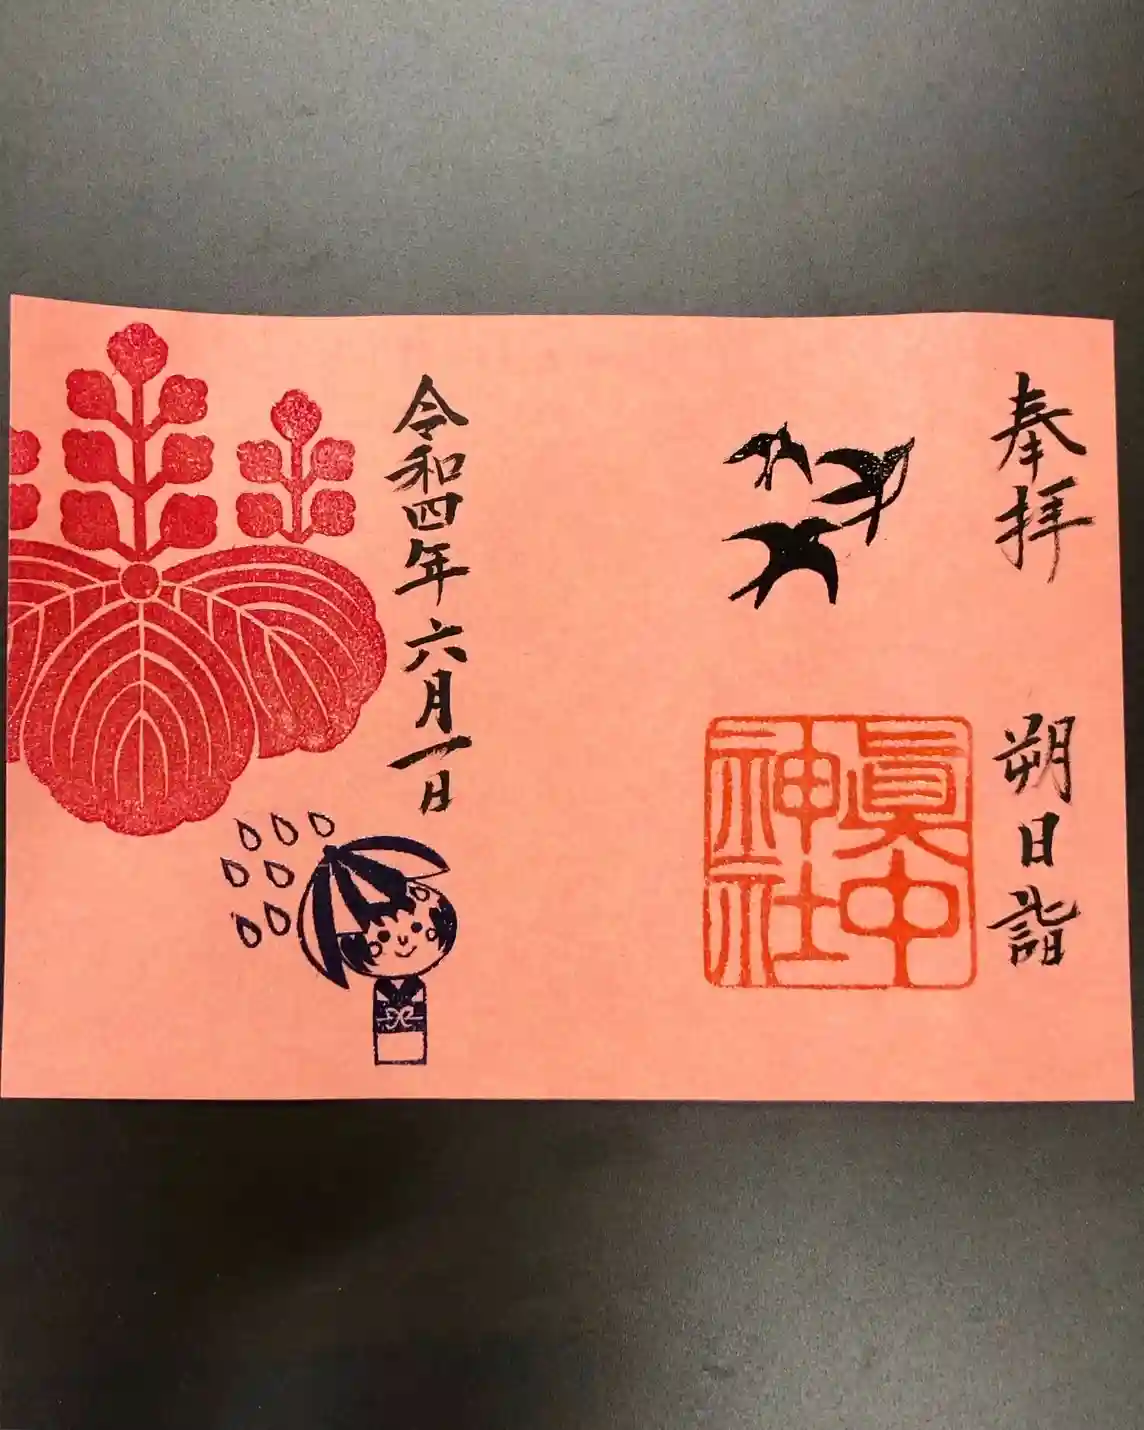 奉拝 朔日詣
眞中
神社
令和四年六月一日